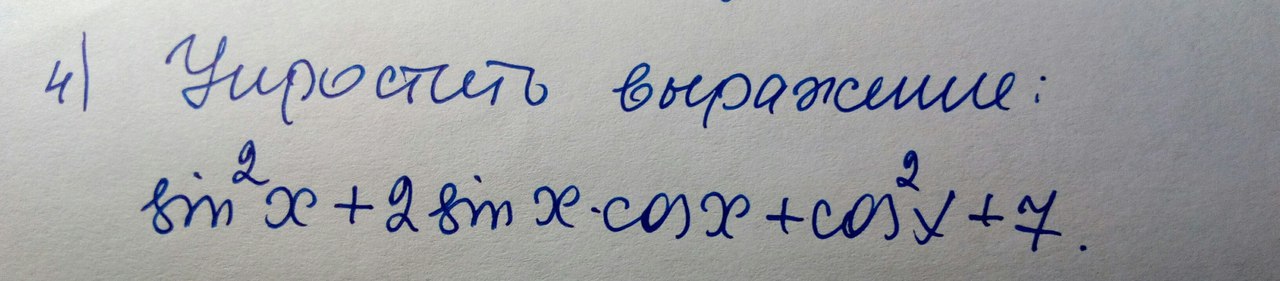 4) Упростить выражение:
sin²x + 2 sin x · cos x + cos²x + 7.